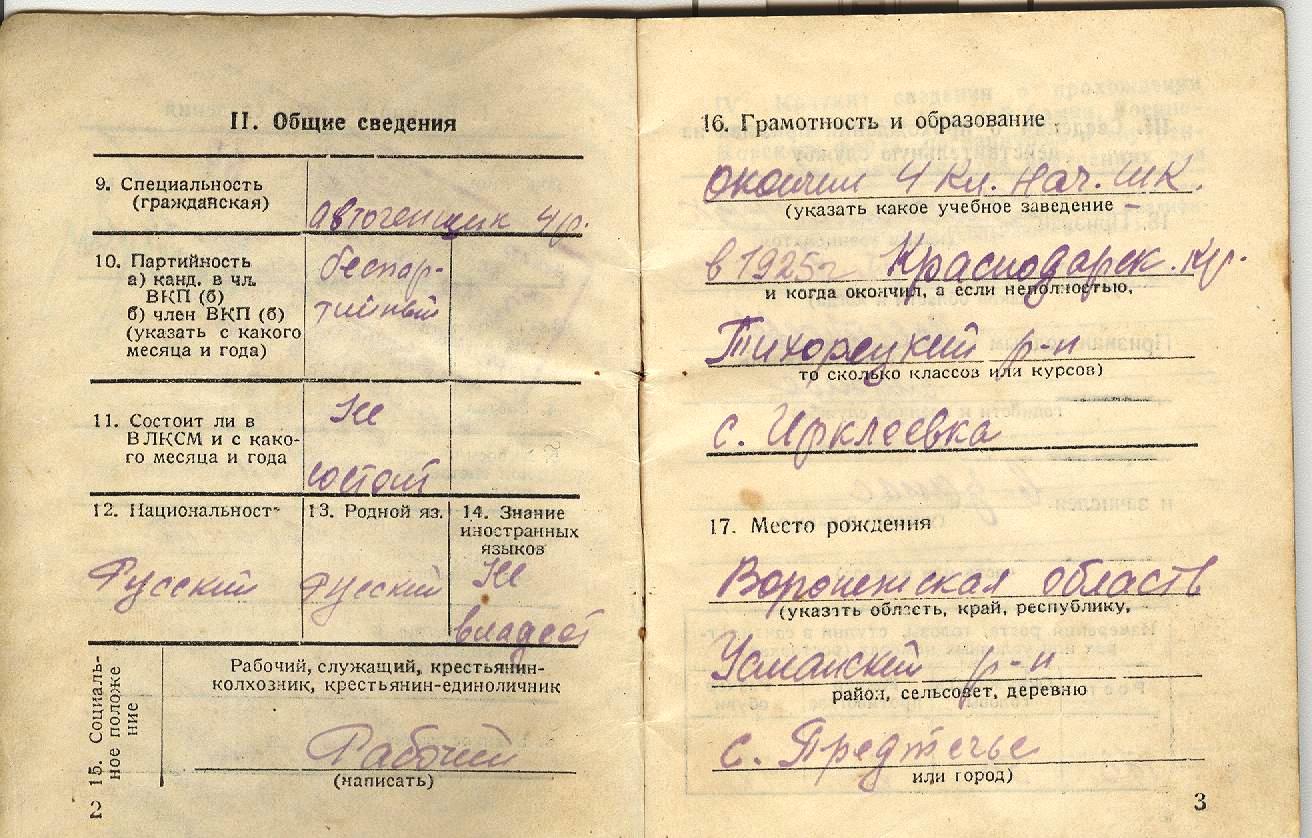 II. Общие сведения
9. Специальность
(гражданская)
автогенщик 4 р.
10. Партийность
а) канд. в чл.
ВКП (б)
б) член ВКП (б)
(указать с какого
месяца и года)
беспар-
тийный
11. Состоит ли в
ВЛКСМ и с како-
го месяца и года
Не
состоит
12. Национальност
Русский
13. Родной яз.
русский
14. Знание
иностранных
языков
Не
владеет
15. Социаль-
ное положе
ние
Рабочий, служащий, крестьянин-
колхозник, крестьянин-единоличник
Рабочий
(написать)
2
16. Грамотность и образование
окончил 4 кл. нач. шк.
(указать какое учебное заведение
в 1925 г. Краснодарск. кр.
и когда окончил, а если неполностью,
Тихорецкий р-н
то сколько классов или курсов)
с. Ирклеевка
17. Место рождения
Воронежская область
(указать область, край, республику,
Усманский р-н
район, сельсовет, деревню
с. Предтечье
или город)
3